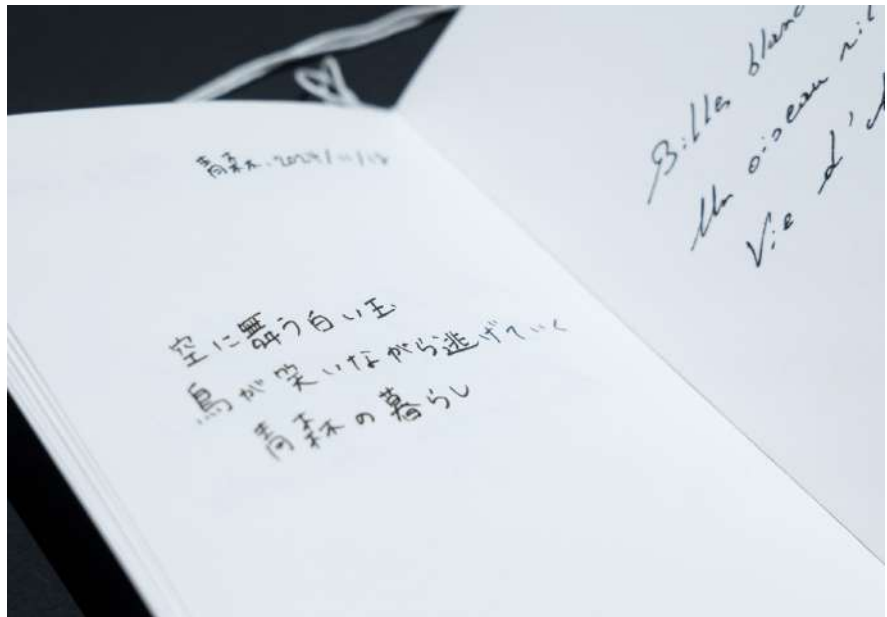 青森、2024/11/18
空に舞う白い玉
鳥が笑いながら逃げていく
青森の暮らし
Billes
Un oiseau
Vie